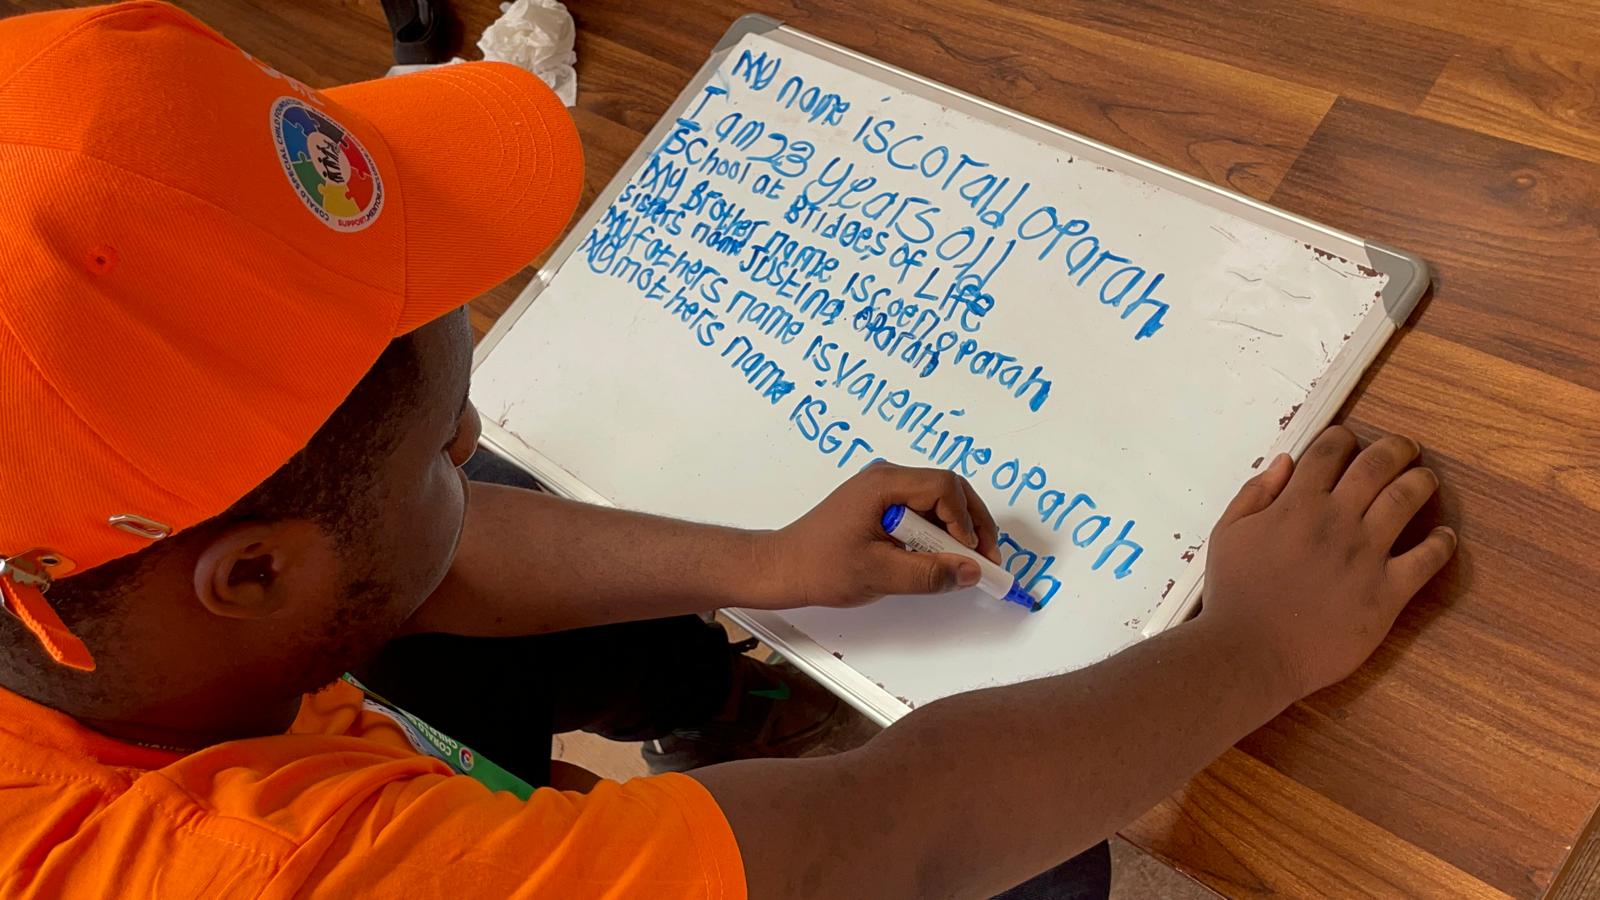 My name is Corald Oparah
I am 23 Years Old
School at Bridges of Life
My Brother name is Coen Oparah
sisters name Justina Oparah
My fathers name is Valentine Oparah
My mothers name is
CORALD SPECIAL CHILD FOUNDATION